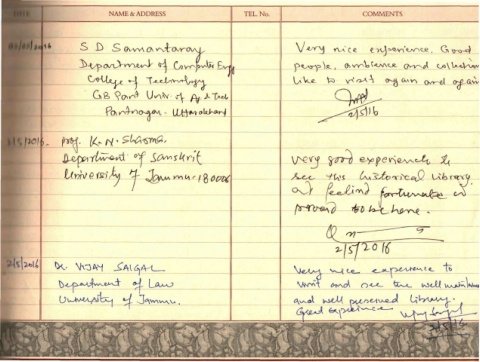 DATE NAME & ADDRESS TEL. No. COMMENTS
S D Samantaray
Department of Computer Engg
College of Technology
GB Pant Univ. of Ag & Tech
Pantnagar - Uttarakhand
Very nice experience. Good
people, ambience and collection
like to visit again and again
2/5/16
2/5/2016. Prof. K. N. Sharma.
Department of Sanskrit
University of Jammu-180006
Very good experience to
see this historical library
and feeling fortunate &
proud to be here.
2/5/2016
2/5/2016 Dr VIJAY SAIGAL
Department of Law
University of Jammu.
Very nice experience to
visit and see the well
and well preserved library.
Great experience
2/5/16